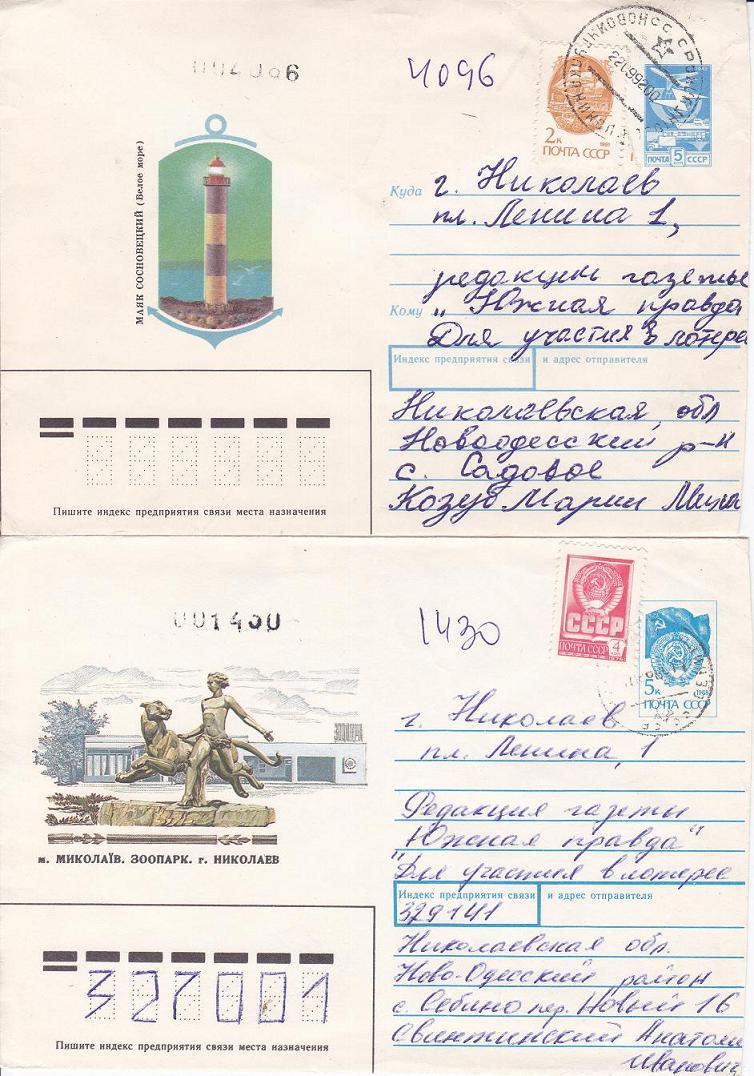 004096
4096
2к 1991
ПОЧТА СССР
ПОЧТА 5 СССР
МАЯК СОСНОВЕЦКИЙ (Белое море)
Куда г. Николаев
пл. Ленина 1,
редакции газеты
Кому „Южная правда
Для участия в лотере
Индекс предприятия связи и адрес отправителя
Николаевская обл
Новоодесский р-н
с. Садовое
Козуб Марии
Пишите индекс предприятия связи места назначения
001430
1430
СССР
ПОЧТА СССР 4
5к 1988
ПОЧТА СССР
г. Николаев
пл. Ленина, 1
Редакция газеты
"Южная правда"
"Для участия в лотерее
м. МИКОЛАЇВ. ЗООПАРК. г. НИКОЛАЕВ
Индекс предприятия связи и адрес отправителя
329141
Николаевская обл.
Ново-Одесский район
с. Себино пер. Новый 16
Свентинский Анатолий
Иванович
327001
Пишите индекс предприятия связи места назначения